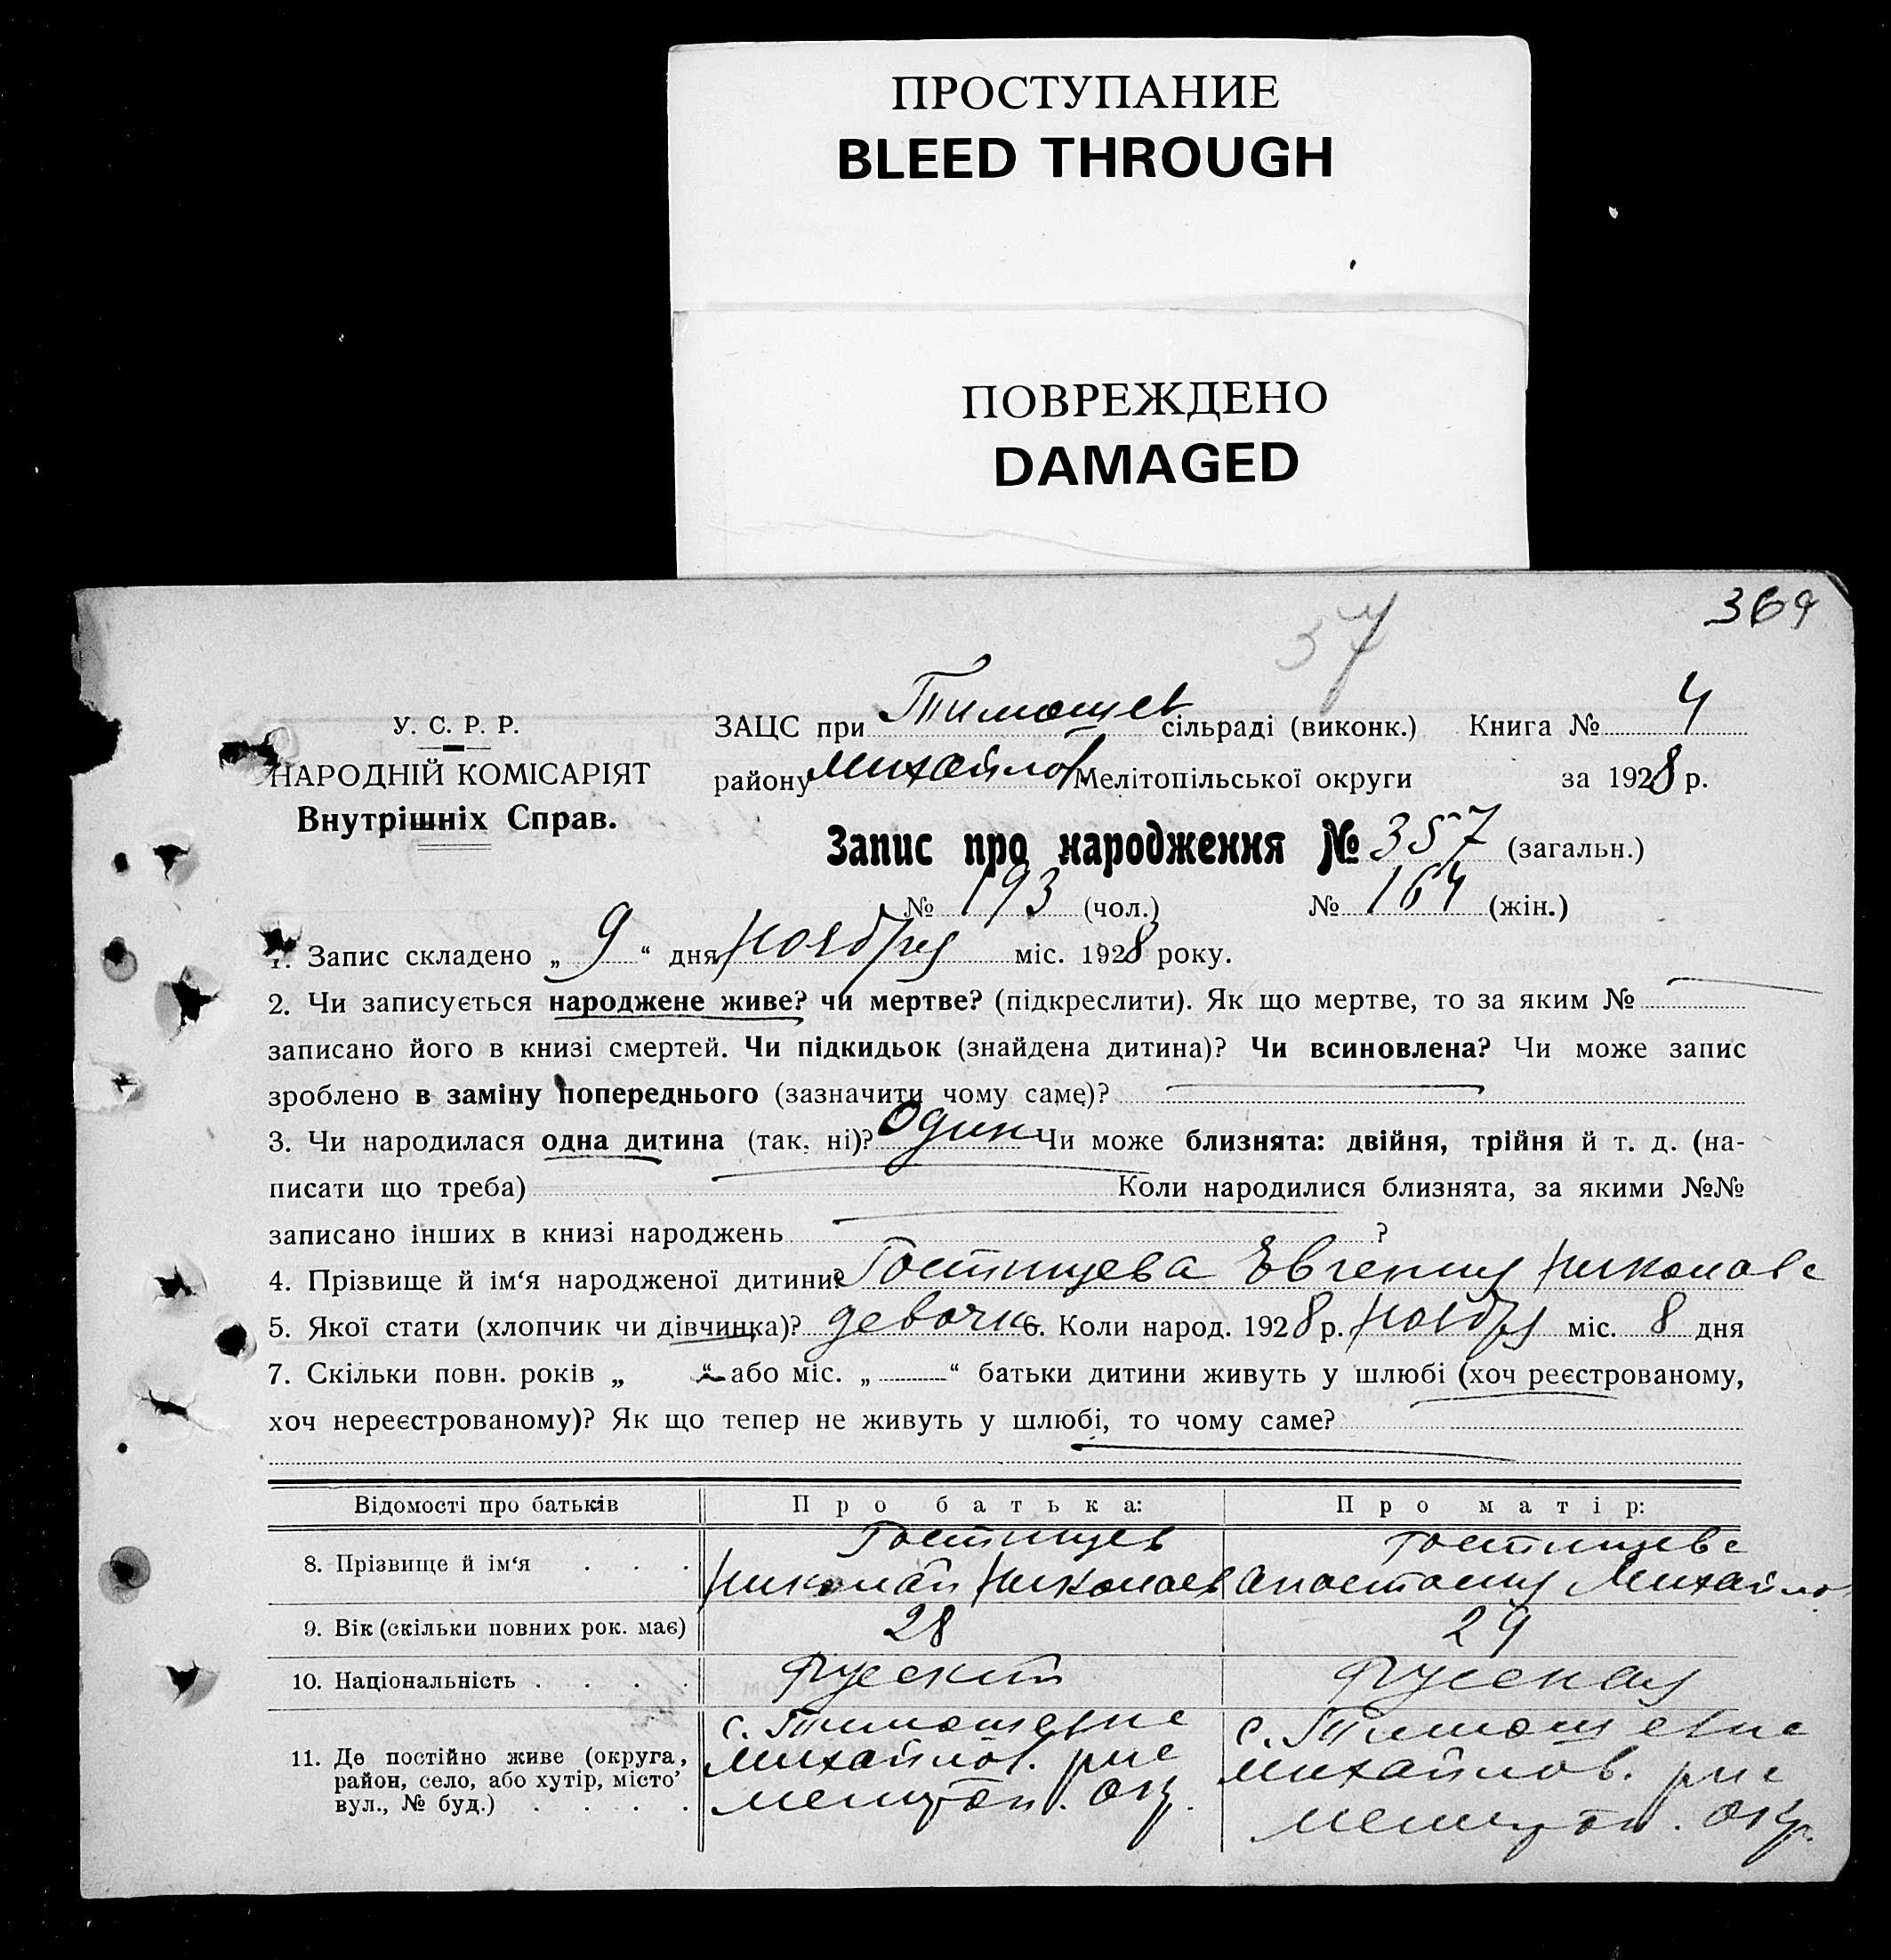 ПРОСТУПАНИЕ
BLEED THROUGH
ПОВРЕЖДЕНО
DAMAGED
369
57
У. С. Р. Р.
НАРОДНІЙ КОМІСАРІЯТ
Внутрішніх Справ.
ЗАЦС при Тимошев сільраді (виконк.) Книга № 4
району Михайлов Мелітопільської округи за 1928 р.
Запис про народження № 357 (загальн.)
№ 193 (чол.) № 164 (жін.)
1. Запис складено „ 9 “ дня Ноября міс. 1928 року.
2. Чи записується народжене живе? чи мертве? (підкреслити). Як що мертве, то за яким №
записано його в книзі смертей. Чи підкидьок (знайдена дитина)? Чи всиновлена? Чи може запис
зроблено в заміну попереднього (зазначити чому саме)?
3. Чи народилася одна дитина (так, ні)? Один Чи може близнята: двійня, трійня й т. д. (на-
писати що треба) Коли народилися близнята, за якими №№
записано інших в книзі народжень ?
4. Прізвище й ім‘я народженої дитини? Гостищева Евгения Николаев
5. Якої стати (хлопчик чи дівчинка)? девочка 6. Коли народ. 1928 р. Ноября міс. 8 дня
7. Скільки повн. років „ “ або міс. „ “ батьки дитини живуть у шлюбі (хоч реєстрованому,
хоч нереєстрованому)? Як що тепер не живуть у шлюбі, то чому саме?
Відомості про батьків Про батька: Про матір:
8. Прізвище й ім‘я . . . Гостищев Николай Николаев Гостищева Анастасия Михайлов
9. Вік (скільки повних рок. має) 28 29
10. Національність . . . . Русский Русская
11. Де постійно живе (округа, с. Тимошевка с. Тимошевка
район, село, або хутір, місто, Михайлов. р-на Михайлов. р-на
вул., № буд.) . . . . Мелитоп. окр. Мелитоп. окр.